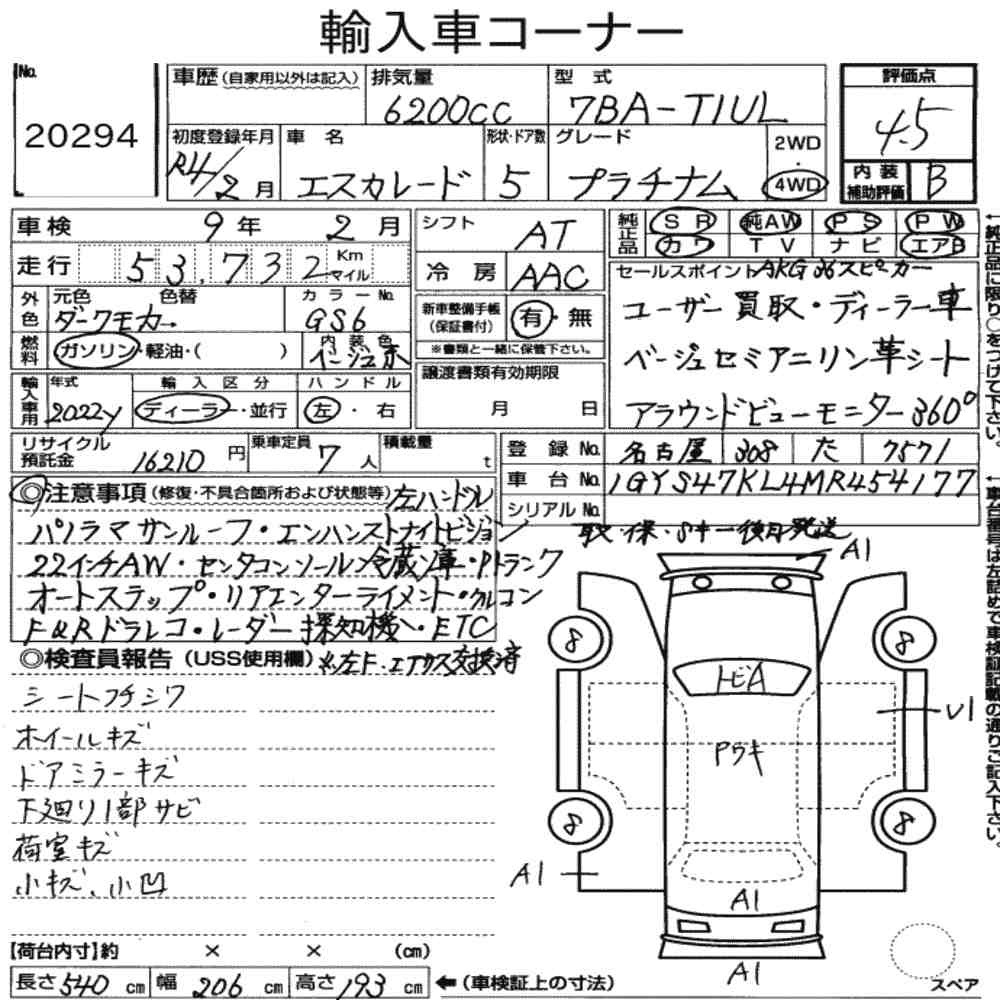 輸入車コーナー
No. 20294
車歴 (自家用以外は記入) 排気量 6200cc 型式 7BA-T1UL
評価点 4.5
初度登録年月 R4/2月 車名 エスカレード 形状・ドア数 5 グレード プラチナム 2WD・4WD
内装補助評価 B
車検 9年 2月 シフト AT
純正品 SR 純AW PS PW カワ TV ナビ エアB
走行 53,732 Km マイル 冷房 AAC
セールスポイント AKG 36スピーカー
外色 元色 色替 カラーNo. ダークモカー GS6
新車整備手帳(保証書付) 有・無
ユーザー買取・ディーラー車
※書類と一緒に保管下さい。
燃料 ガソリン・軽油・( ) 内装色 ベージュ系
ベージュセミアニリン革シート
譲渡書類有効期限 月 日
輸入車用 年式 2022y 輸入区分 ディーラー・並行 ハンドル 左・右
アラウンドビューモニター360°
リサイクル預託金 16210円 乗車定員 7人 積載量 t
登録No. 名古屋 308 た 7571
車台No. 1GYS47KL4MR454177
シリアルNo.
◎注意事項 (修復・不具合箇所および状態等) 左ハンドル
パノラマサンルーフ・エンハンストナイトビジョン
取・保・Sキー使用発送
22インチAW・センタコンソール冷蔵庫・Pトランク
オートステップ・リアエンターテイメント・クルコン
F&Rドラレコ・レーダー探知機・ETC
◎検査員報告 (USS使用欄) ※左F.エアサス交換済
シートフチシワ
ホイールキズ
ドアミラーキズ
下廻り1部サビ
荷室キズ
小キズ、小凹
A1
8
8
トビA
U1
Pウキ
8
8
A1
A1
A1
【荷台内寸】約 × × (cm)
長さ 540 cm 幅 206 cm 高さ 193 cm ←(車検証上の寸法)
スペア
←純正品に限り○をつけて下さい。
←車台番号は左詰めで車検証記載の通りご記入下さい。